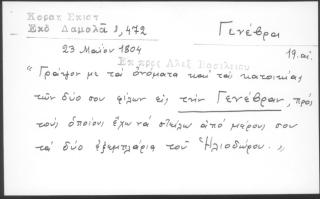 Κοραη Επιστ
Εκδ Δαμαλᾶ 1,472
Γενέβραι
23 Μαΐου 1804
19. αἰ.
Επ προς Αλεξ Βασιλειου
"Γράψον με τὰ ὀνόματα καὶ τὰς κατοικίας
τῶν δύο σου φίλων εἰς τὴν Γενέβραν, πρὸς
τοὺς ὁποίους ἔχω νὰ στείλω ἀπὸ μέρους σου
τὰ δύο ἐξεμπλάρια τοῦ Ἡλιοδώρου."